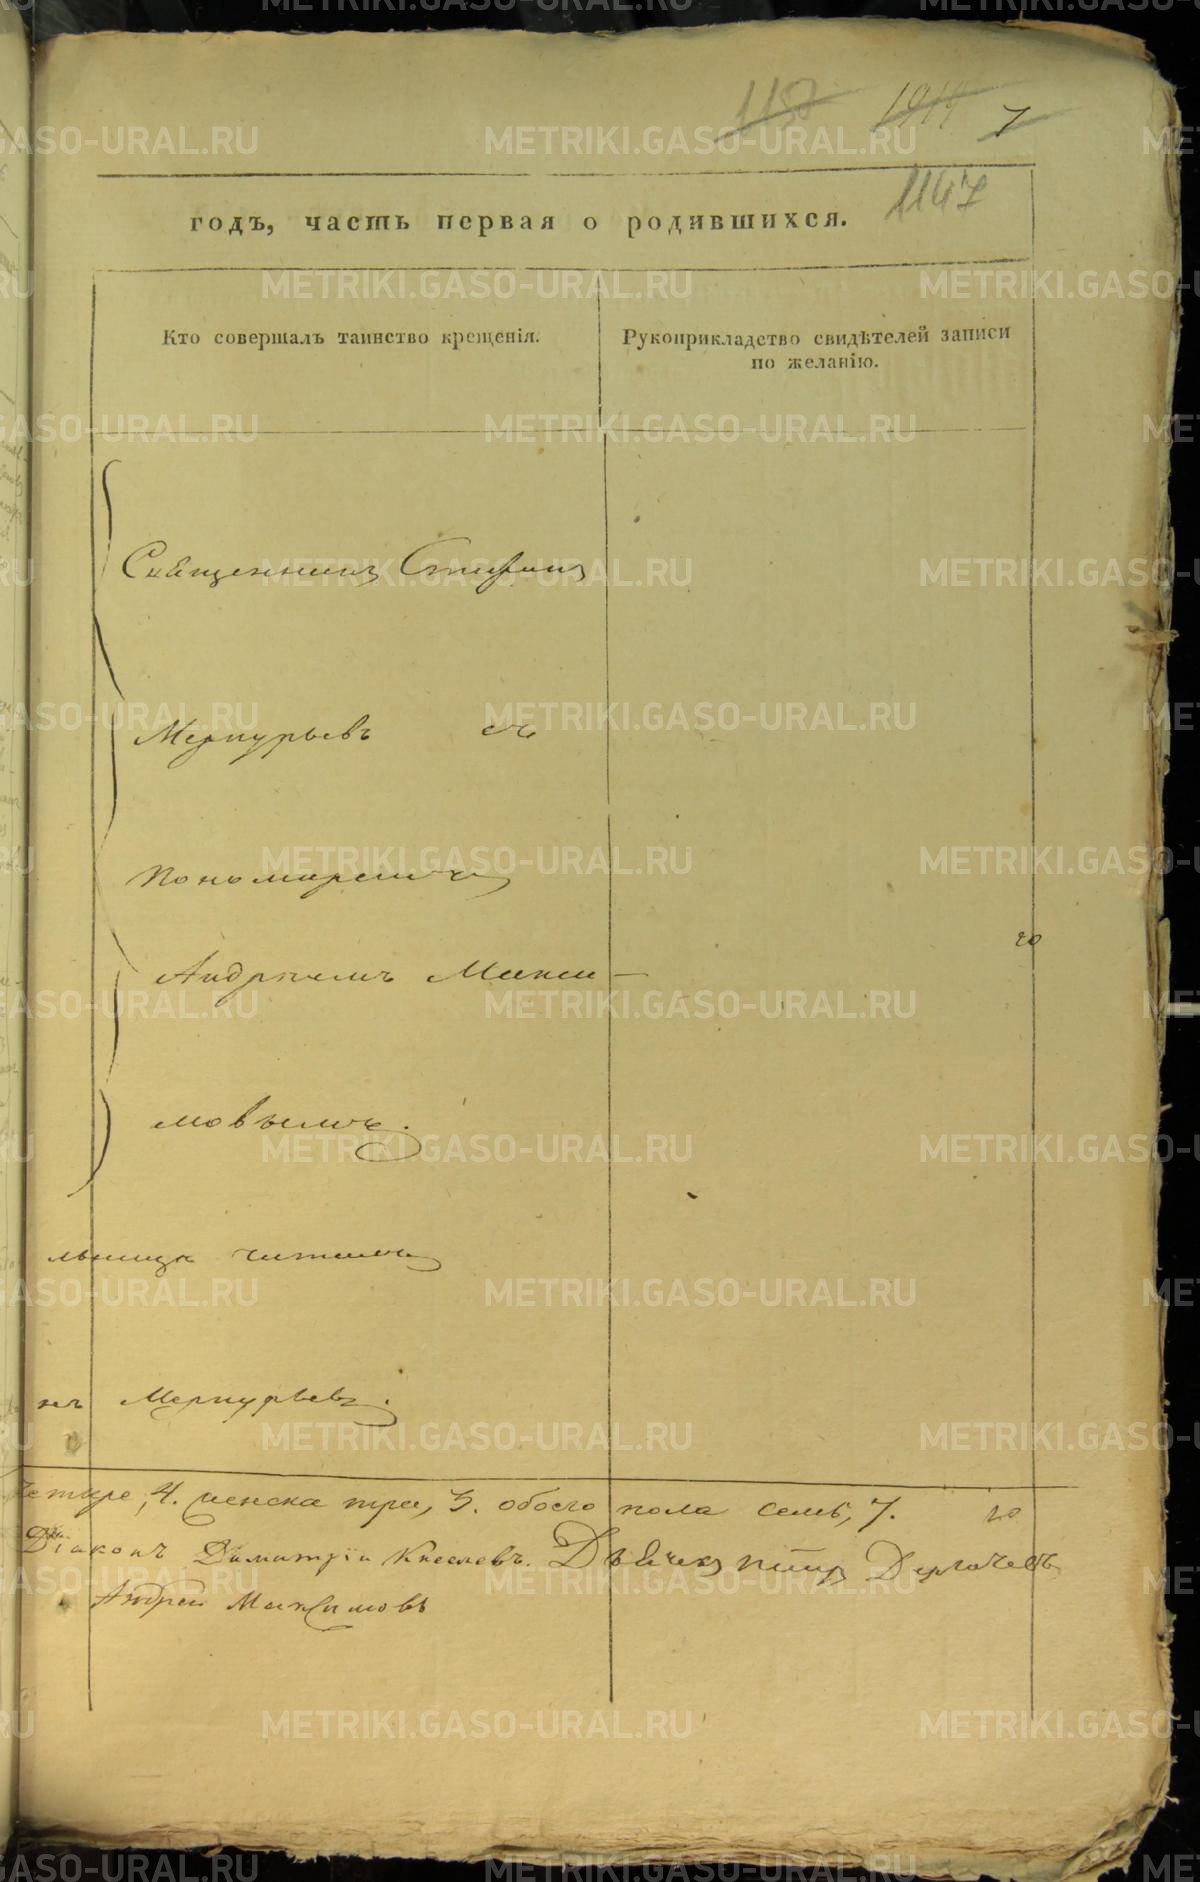 110 1914 7
1147
годъ, часть первая о родившихся.
Кто совершалъ таинство крещенія.
Рукоприкладство свидѣтелей записи
по желанію.
Священникъ Стефанъ
Меркурьевъ съ
Пономаремъ
Андреемъ Макси-
мовымъ.
читалъ
Меркурьевъ.
четыре, 4. женска три, 3. обоего пола семь, 7.
Діаконъ Димитрій Киселевъ. Дьячекъ Петръ Дерлачевъ
Андрей Максимовъ
METRIKI.GASO-URAL.RU